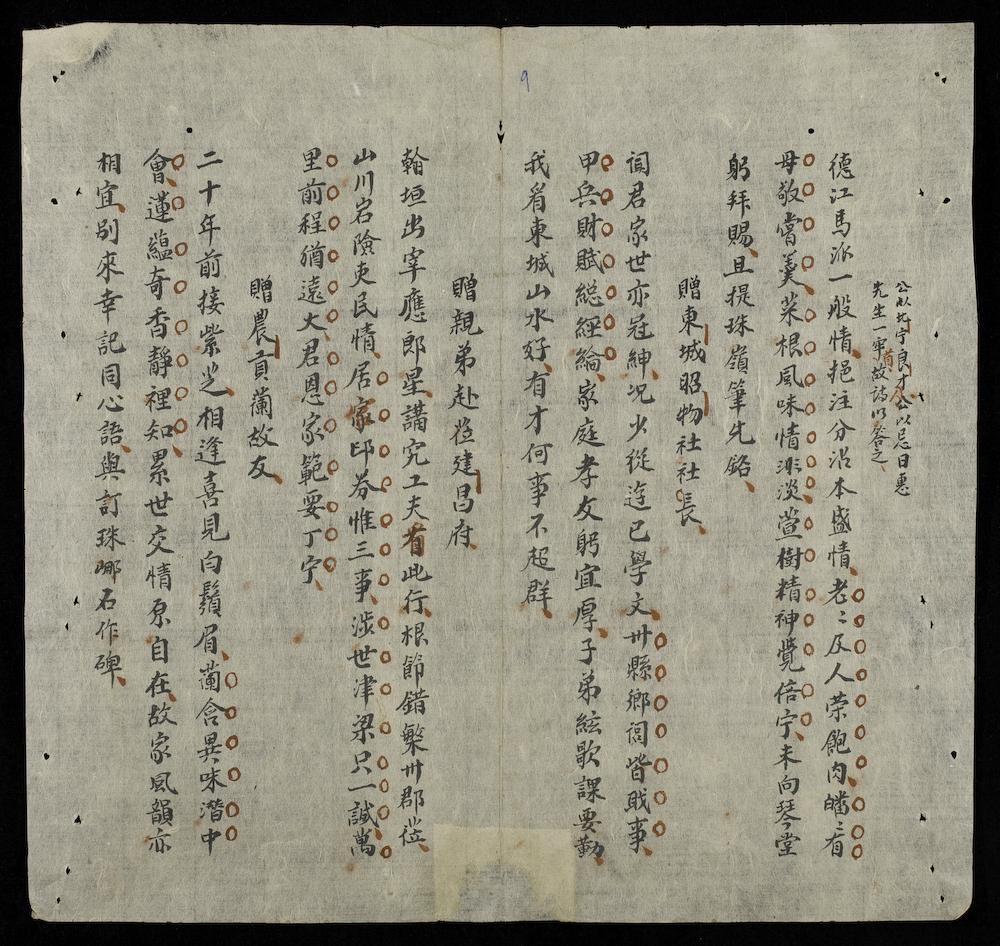 9
公以北宁良才公以忌日惠
先生一牢省故詩以答之
德江馬派一般情挹注分沾本盛情老〻及人荣飽肉皤〻有
母敬嘗羹菜根風味情淡萱樹精神覺倍宁未向琴堂
躬拜賜且提珠嶺筆先銘
贈東城昭物社社長
閭君家世亦冠紳况少從遊已學文卅縣鄉閭皆戝事
甲兵財賦総經綸家庭孝友躬宜厚子弟絃歌課要勤
我看東城山水好有才何事不超群
贈親弟赴莅建昌府
翰垣出宰應郎星講究工夫有此行根節錯槃卅郡莅
山川宕險吏民情居家印券惟三事涉世津梁只一誠萬
里前程猶遠大君恩家範要丁宁
贈農貢蘭故友
二十年前接紫芝相逢喜見白鬚眉蘭含異味潛中
會蓮蘊奇香靜裡知累世交情原自在故家風韻亦
相宜別來幸記同心語與訂珠哪石作碑